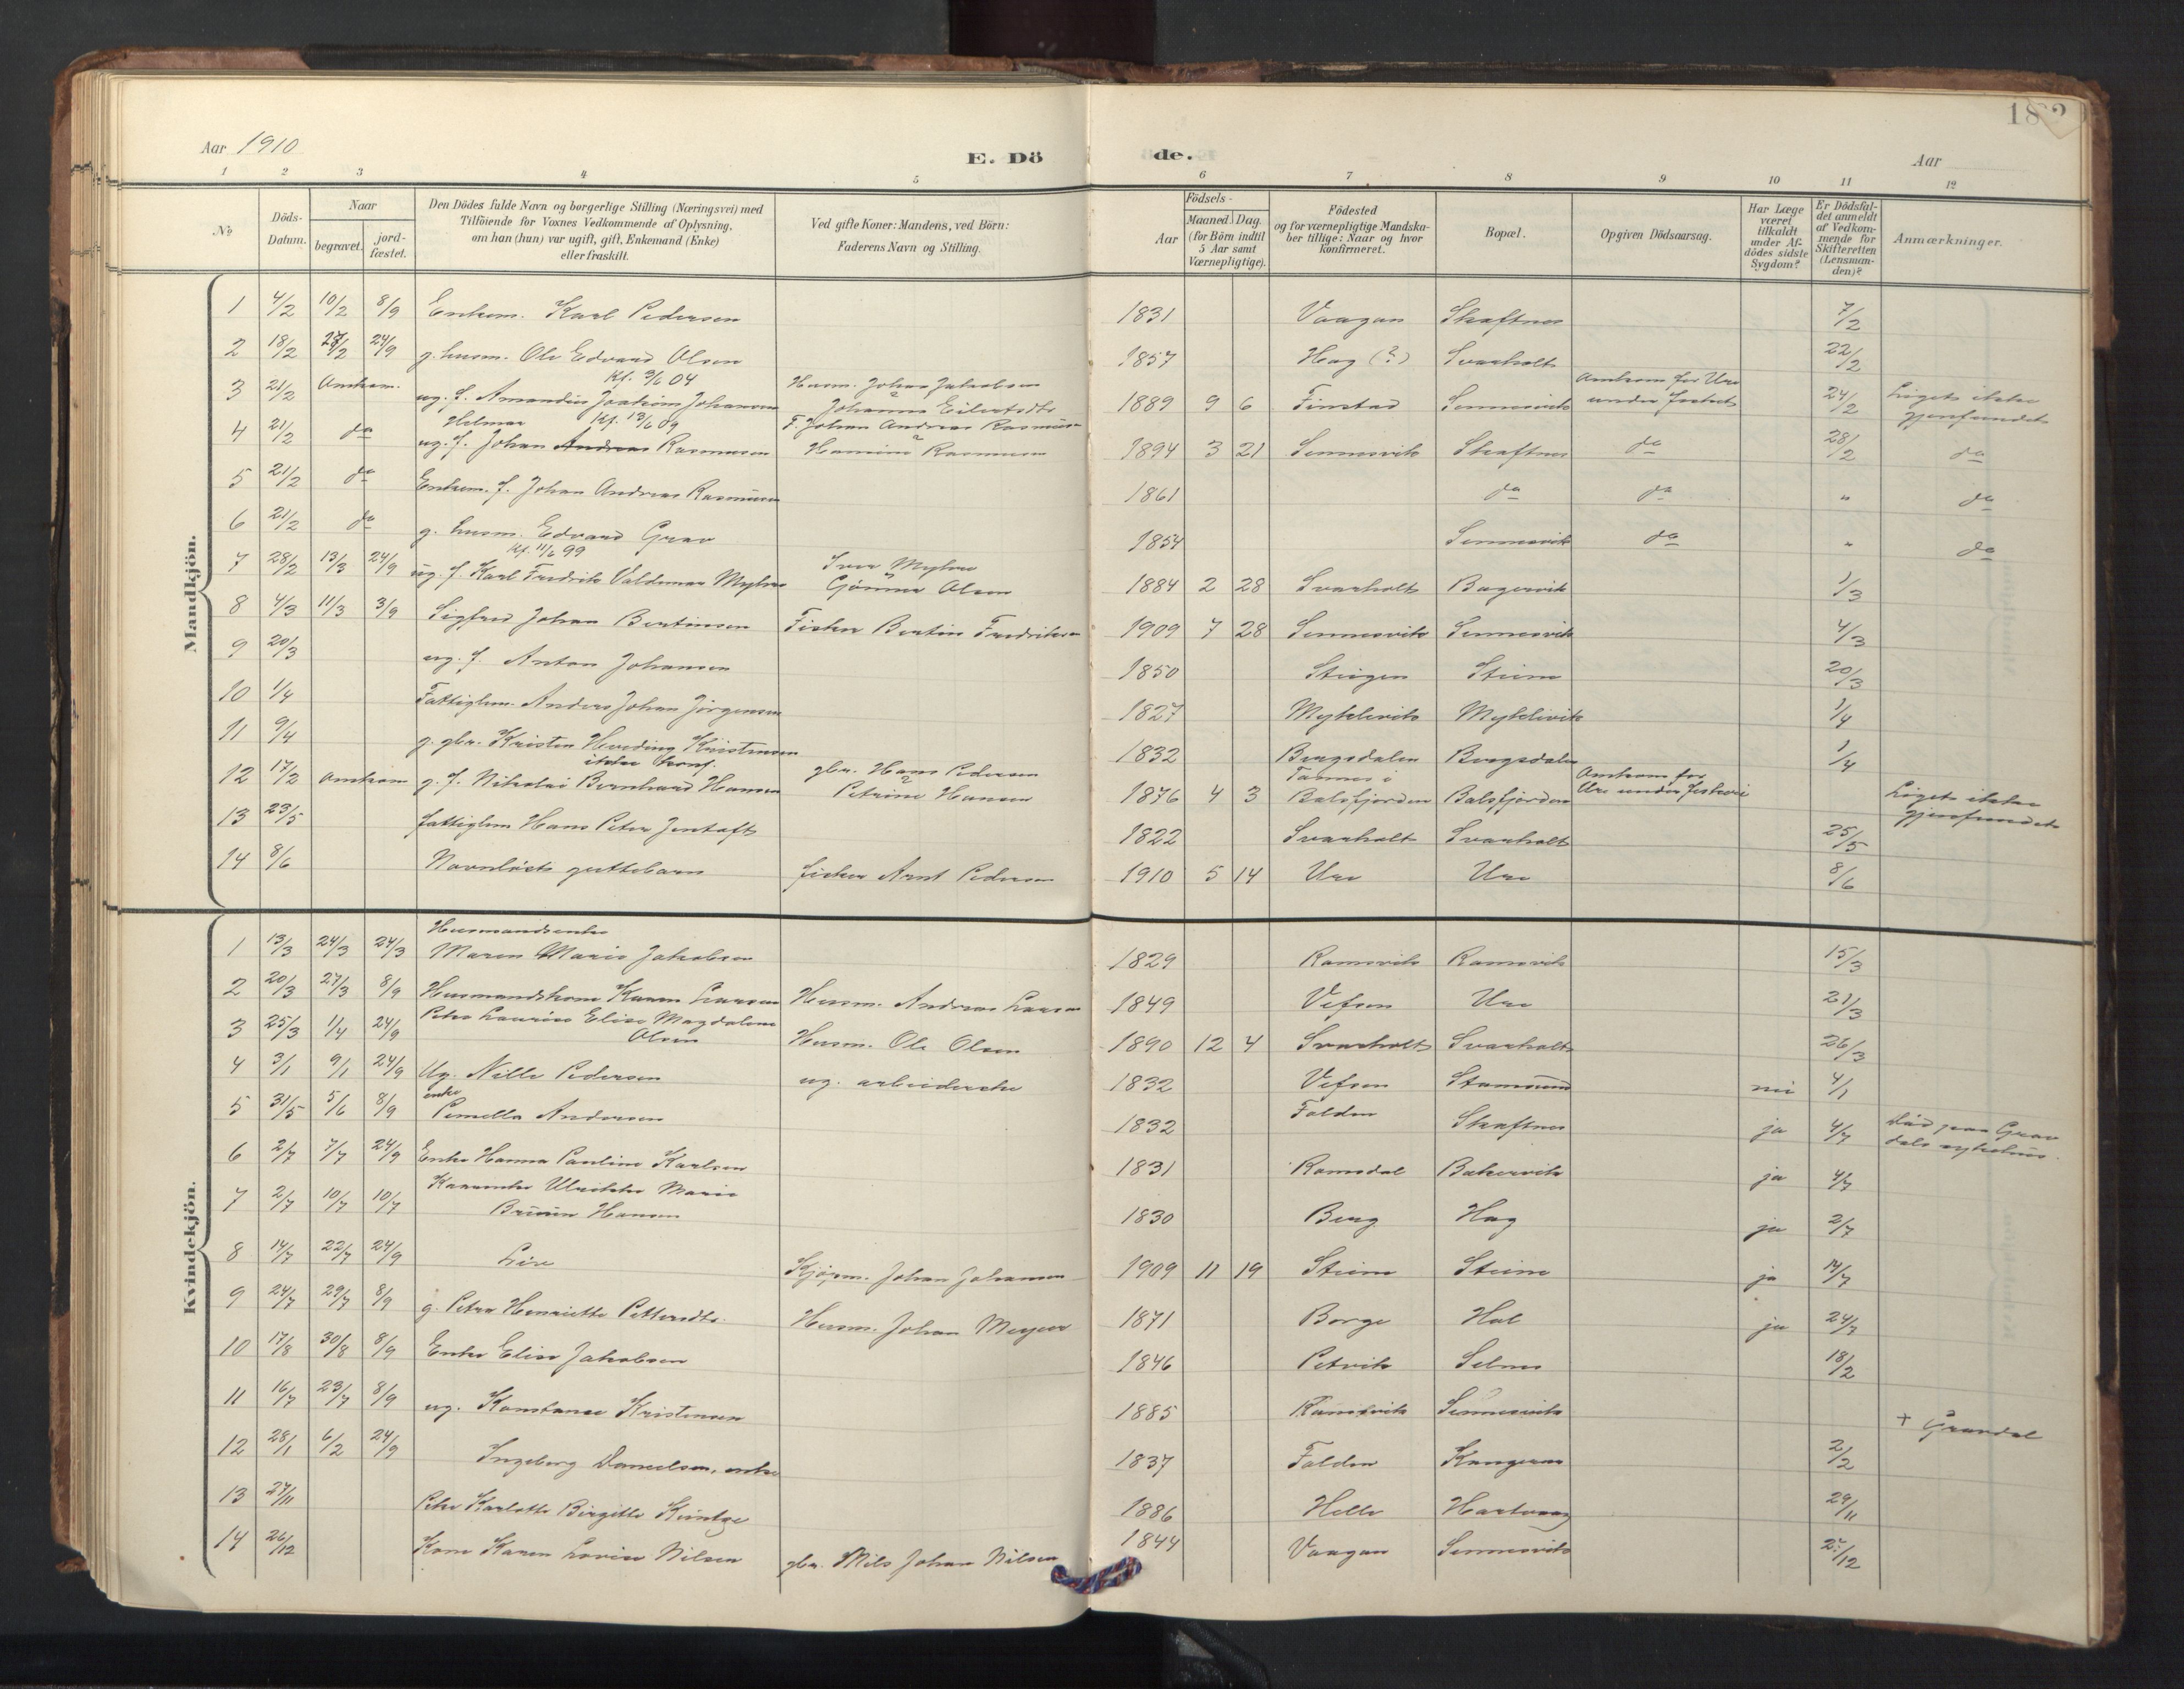 182
Aar 1910
E. Dö de.
Aar
1 2 3 4 5 6 7 8 9 10 11 12
№
Döds-Datum.
Naar
begravet.
jord-fæstet.
Den Dödes fulde Navn og borgerlige Stilling (Næringsvei) med
Tilföiende for Voxnes Vedkommende af Oplysning,
om han (hun) var ugift, gift, Enkemand (Enke)
eller fraskilt.
Ved gifte Koner: Mandens, ved Börn:
Faderens Navn og Stilling.
Födsels-
Aar
Maaned. Dag.
(for Börn indtil
5 Aar samt
Værnepligtige).
Födested
og for værnepligtige Mandska-
ber tillige: Naar og hvor
konfirmeret.
Bopæl.
Opgiven Dödsaarsag.
Har Læge
været
tilkaldt
under Af-
dödes sidste
Sygdom?
Er Dödsfal-
det anmeldt
af Vedkom-
mende for
Skifteretten
(Lensman-
den)?
Anmærkninger.
Mandkjön.
1 4/2 10/2 8/9 Enkem. Karl Pedersen 1831 Vaagan Skaftnes 7/2
2 18/2 27/2 24/9 g. husm. Ole Edvard Olsen 1857 Hag (?) Svarholt 22/2
3 21/2 Omkom. Kf. 3/6 04 ug. f. Amandus Joakim Johansen Husm. Johan Jakobsen Johanna Eilertsdtr 1889 9 6 Finstad Sennesvik Omkom for Ure under fiskeri 24/2 Liget ikke gjenfundet
4 21/2 do Helmer Kf. 13/6 09 ug. f. Johan Andreas Rasmusen F. Johan Andreas Rasmusen Rasmusen 1894 3 21 Sennesvik Skaftnes do 28/2 do
5 21/2 do Enkem. f. Johan Andreas Rasmusen 1861 do do " do
6 21/2 do g. husm. Edvard Grav 1854 Sennesvik do " do
7 28/2 13/3 24/9 Kf. 11/6 99 ug. f. Karl Fredrik Valdemar Myhre Iver Myhre Olsen 1884 2 28 Svarholt Bagervik 1/3
8 4/3 11/3 3/9 Sigfred Johan Bertinsen Fisker Bertin Fredriksen 1909 7 28 Sennesvik Sennesvik 4/3
9 20/3 ug. f. Anton Johansen 1850 Steigen Steine 20/3
10 1/4 Fattiglem. Anders Johan Jörgensen 1827 Myklevik Myklevik 1/4
11 9/4 g. gbr. Kristen Hveding Kristensen 1832 Bergsdalen Bergsdalen 1/4
12 17/2 Omkom ikke konf. g. f. Nikolai Bernhard Hansen gbr. Hans Pedersen Petrine Hansen 1876 4 3 Tannes i Balsfjorden Balsfjorden Omkom for Ure under fiskeri Liget ikke gjenfundet
13 23/5 fattiglem Hans Peter Jentoft 1822 Svarholt Svarholt 25/5
14 8/6 Navnlöst guttebarn fisker Arnt Pedersen 1910 5 14 Ure Ure 8/6
Kvindekjön.
1 13/3 24/3 24/3 Husmandsenke Maren Marie Jakobsen 1829 Ramsvik Ramsvik 15/3
2 20/3 27/3 8/9 Husmandskone Karen Larsen Husm. Andreas Larsen 1849 Vefsen Ure 21/3
3 25/3 1/4 24/9 Petra Laurise Elise Magdalene Olsen Husm. Ole Olsen 1890 12 4 Svarholt Svarholt 26/3
4 3/1 9/1 24/9 Ug. Nille Pedersen ug. arbeiderske 1832 Vefsen Stamsund nei 4/1
5 31/5 5/6 8/9 enke Pernella Andersen 1832 Folden Skaftnes ja 4/7 Död paa Gravdals sykehus.
6 2/7 7/7 24/9 Enke Hanna Pauline Karlsen 1831 Ramsdal Bakervik ja 4/7
7 2/7 10/7 10/7 Ulrikke Marie Hansen 1830 Berg Hag ja 2/7
8 14/7 22/7 24/9 Kjøpm. Johan Johansen 1909 11 19 Steine Steine ja 14/7
9 24/7 29/7 8/9 g. Petra Henriette Pettersdtr. Husm. Johan Meyer 1871 Borge Hol ja 24/7
10 17/8 30/8 8/9 Enke Elise Jakobsen 1846 Petvik Selnes 18/2
11 16/7 23/7 8/9 ug. Konstanse Kristensen 1885 Ramsvik Sennesvik + Gravdal
12 28/1 6/2 24/9 Ingeborg Danielsen, enke 1837 Folden 2/2
13 27/11 Petra Karlotte Birgitte 1886 Helle 29/11
14 26/12 Kone Karen Lovise Nilsen gbr. Nils Johan Nilsen 1844 Vaagan Sennesvik 27/12